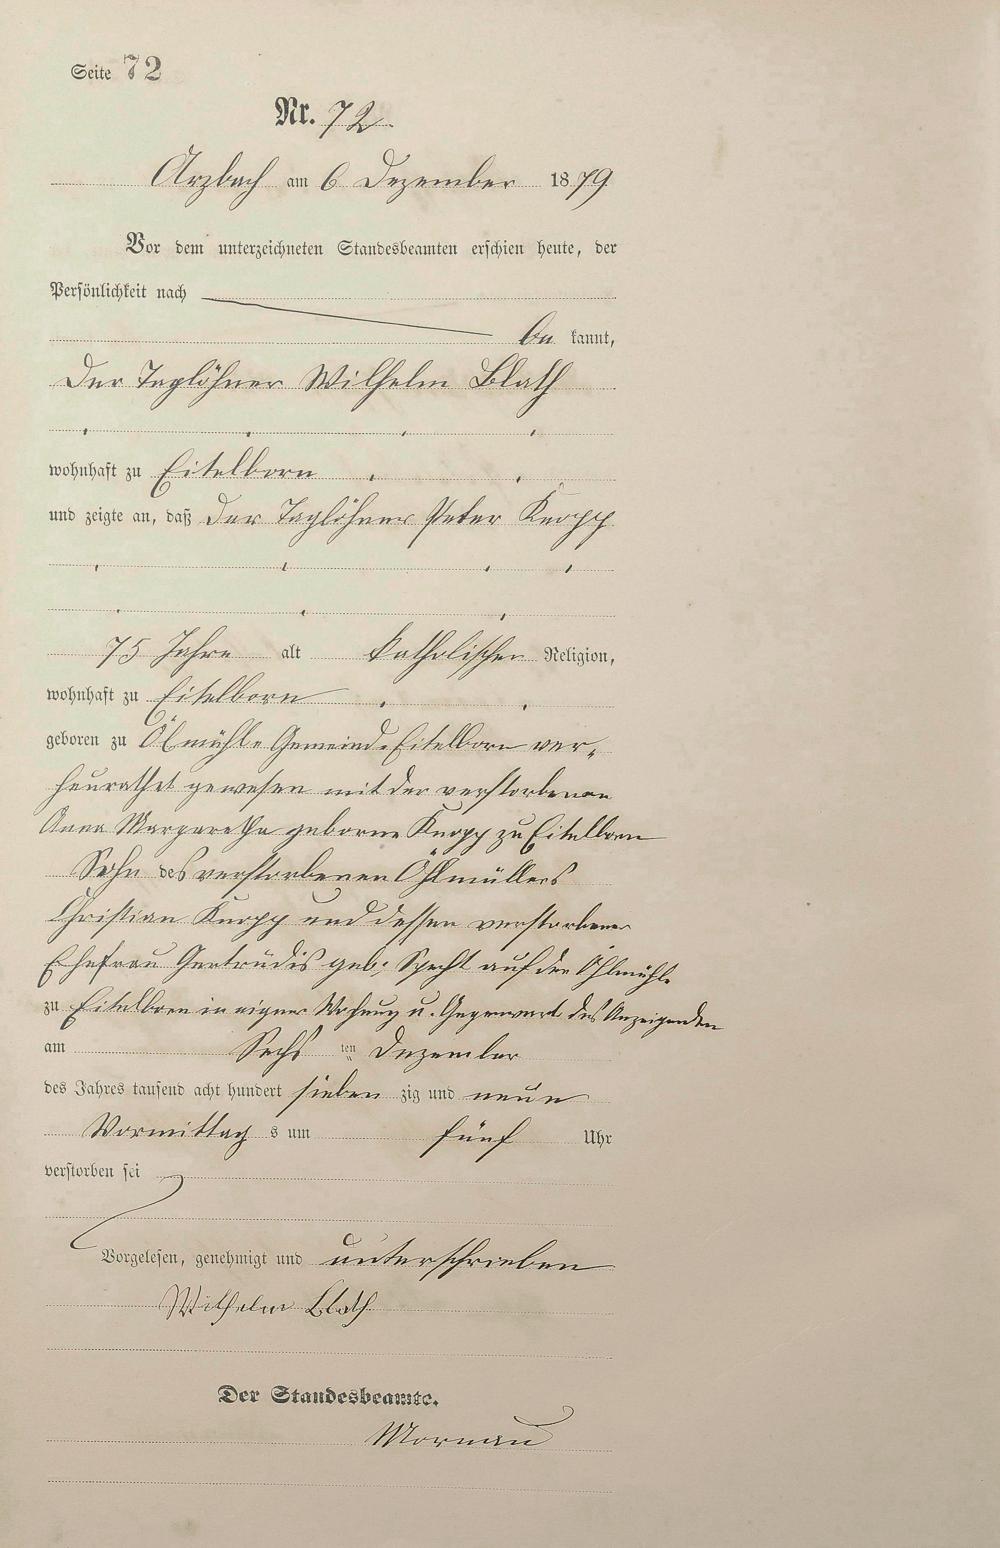 Seite 72
Nr. 72
Arzbach am 6 Dezember 1879
Vor dem unterzeichneten Standesbeamten erschien heute, der
Persönlichkeit nach
be kannt,
der Taglöhner Wilhelm Blath
wohnhaft zu Eitelborn
und zeigte an, daß der Taglöhner Peter Knopp
75 Jahre alt katholischer Religion,
wohnhaft zu Eitelborn
geboren zu Ölmühle Gemeinde Eitelborn ver„
heurathet gewesen mit der verstorbenen
Anna Margaretha geborne Knopp zu Eitelborn
Sohn des verstorbenen Öhlmüllers
Christian Knopp und dessen verstorbener
Ehefrau Gertrudis geb: Specht auf der Öhlmühle
zu Eitelborn in eigner Wohnung u. Gegenwart des Anzeigenden
am Sechs ten Dezember
des Jahres tausend acht hundert sieben zig und neun
Vormittag s um fünf Uhr
verstorben sei
Vorgelesen, genehmigt und unterschrieben
Wilhelm Blath
Der Standesbeamte.
Mornau